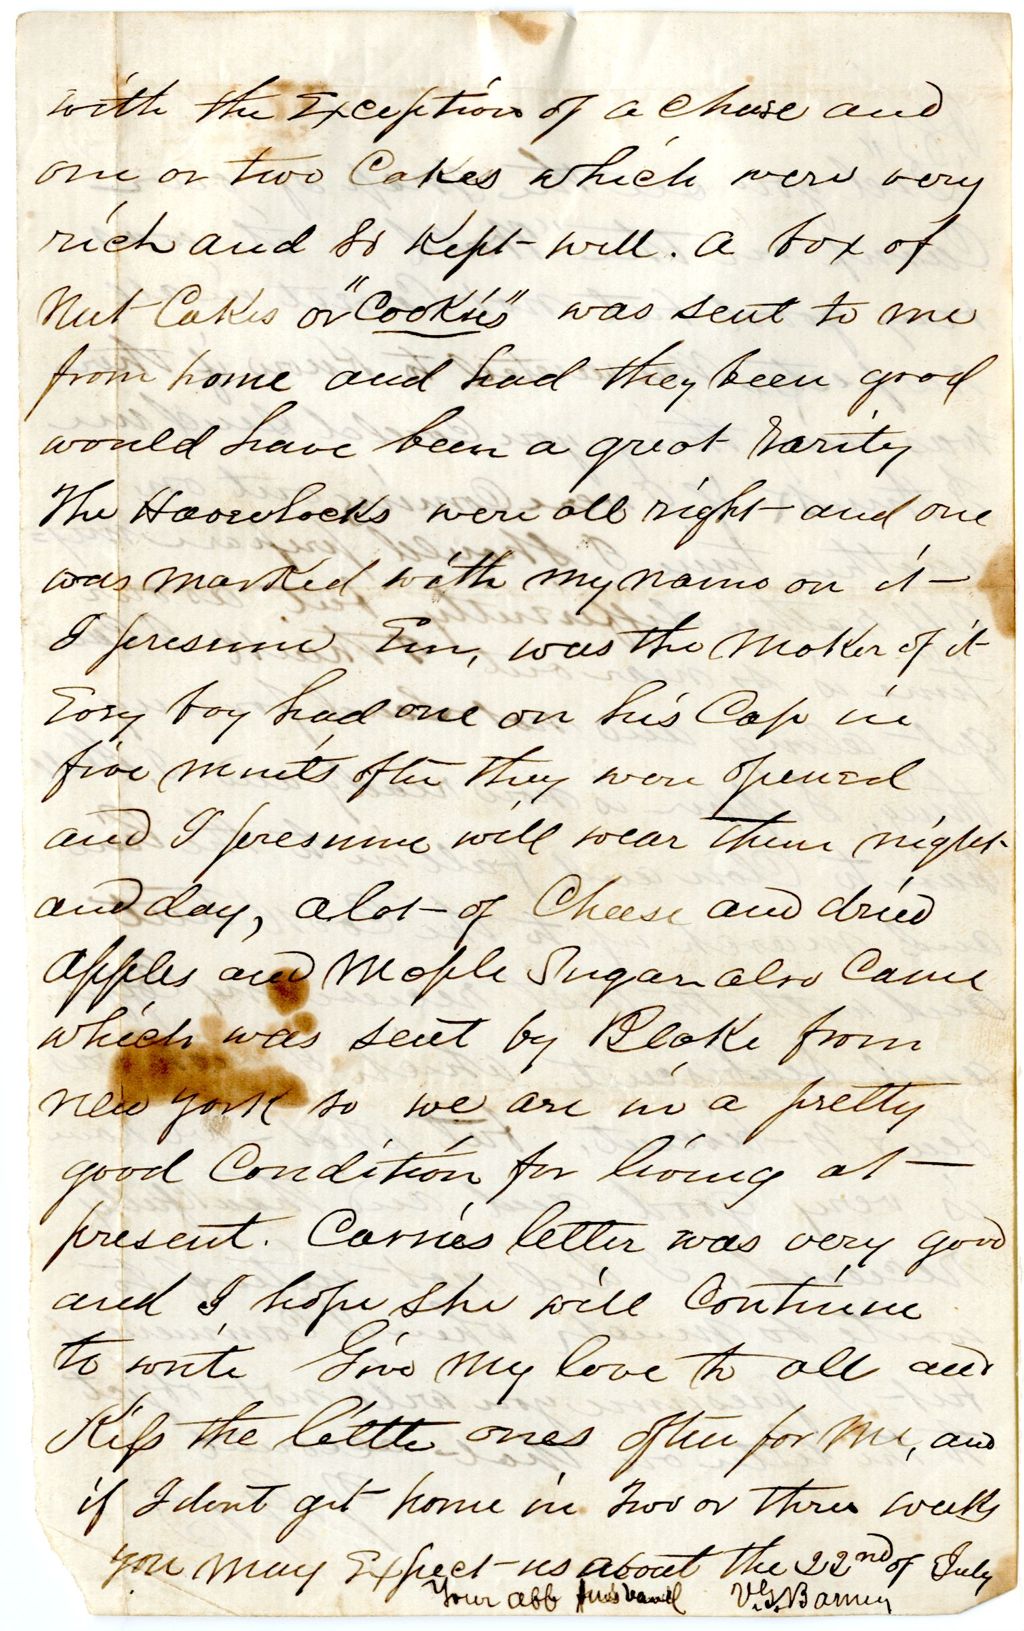 with the Exception of a Cheese and
one or two Cakes which were very
rich and so Kept well. a box of
Nut Cakes or "Cookies" was sent to me
from home and had they been good
would have been a great rarity
The Havelocks were all right and one
was marked with my name on it
I presume Em, was the Maker of it
Evry boy had one on his Cap in
five minits after they were opened
and I presume will wear them night
and day, a lot of Cheese and dried
apples and Maple Sugar also Came
which was sent by Blake from
New York so we are in a pretty
good Condition for living at
present. Carries letter was very good
and I hope she will Continue
to write Give My love to all and
Kiss the little ones often for Me, and
if I dont get home in two or three weeks
you may Expect us about the 22nd of July
Your abb Husband V.G. Barney